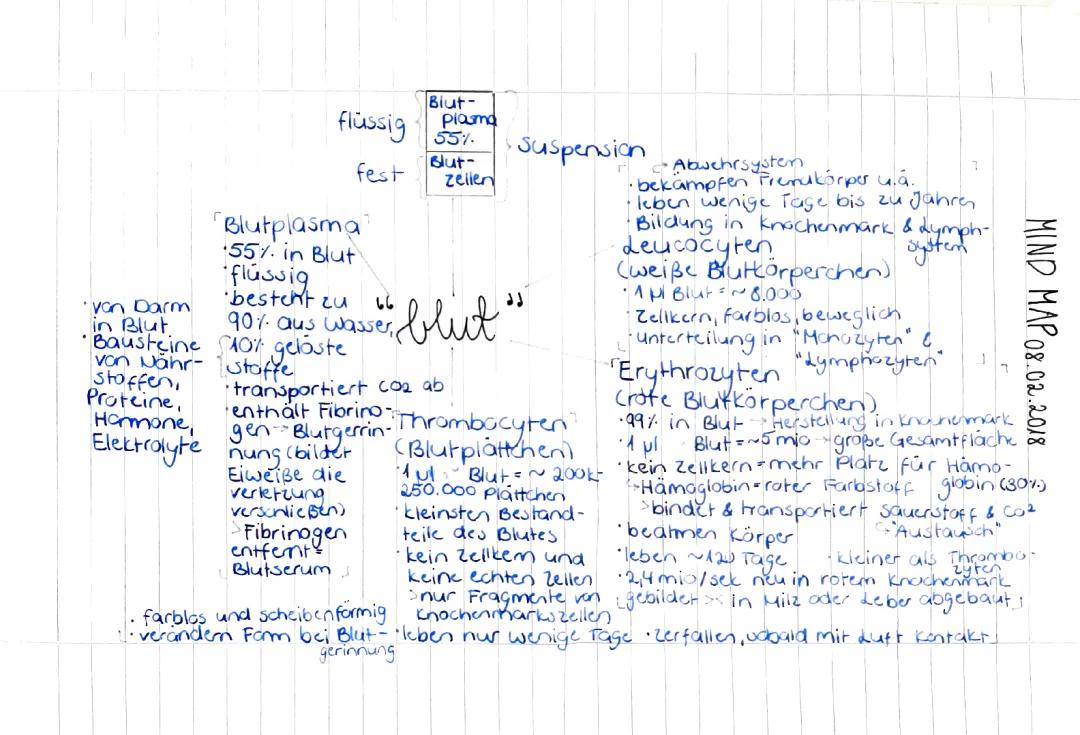 flüssig
Blut-
plasma
55%
fest
Blut-
zellen
suspension
"Blut"
MIND MAP 08.02.2018
Blutplasma
· 55% in Blut
· flüssig
· besteht zu
90% aus Wasser
10% gelöste
Stoffe
· transportiert CO2 ab
· enthält Fibrino-
gen -> Blutgerin-
nung (bildet
Eiweiße die
verletzung
verschließen)
> Fibrinogen
entfernt =
Blutserum
· von Darm
in Blut
· Bausteine
von Nähr-
stoffen,
Proteine,
Hormone,
Elektrolyte
-> Abwehrsystem
· bekämpfen Fremdkörper u.ä.
· leben wenige Tage bis zu Jahren
· Bildung in Knochenmark & Lymph-
system
Leucocyten
(weiße Blutkörperchen)
· 1 µl Blut = ~ 8.000
· Zellkern, farblos, beweglich
· unterteilung in "Monozyten" &
"Lymphozyten"
Erythrozyten
(rote Blutkörperchen)
· 99% in Blut -> Herstellung in Knochenmark
· 1 µl Blut = ~5 mio -> große Gesamtfläche
· kein Zellkern = mehr Platz für Hämo-
globin (30%)
-> Hämoglobin = roter Farbstoff
> bindet & transportiert Sauerstoff & CO2
-> "Austausch"
· beatmen Körper
· leben ~120 Tage · kleiner als Thrombo-
zyten
· 2,4 mio/sek neu in rotem Knochenmark
gebildet >< in Milz oder Leber abgebaut
Thrombocyten
(Blutplättchen)
· 1 µl Blut = ~ 200k-
250.000 Plättchen
· kleinsten Bestand-
teile des Blutes
· kein Zellkern und
keine echten Zellen
> nur Fragmente von
Knochenmarkszellen
· farblos und scheibenförmig
· verändern Form bei Blut-
gerinnung
· leben nur wenige Tage · zerfallen, sobald mit Luft Kontakt